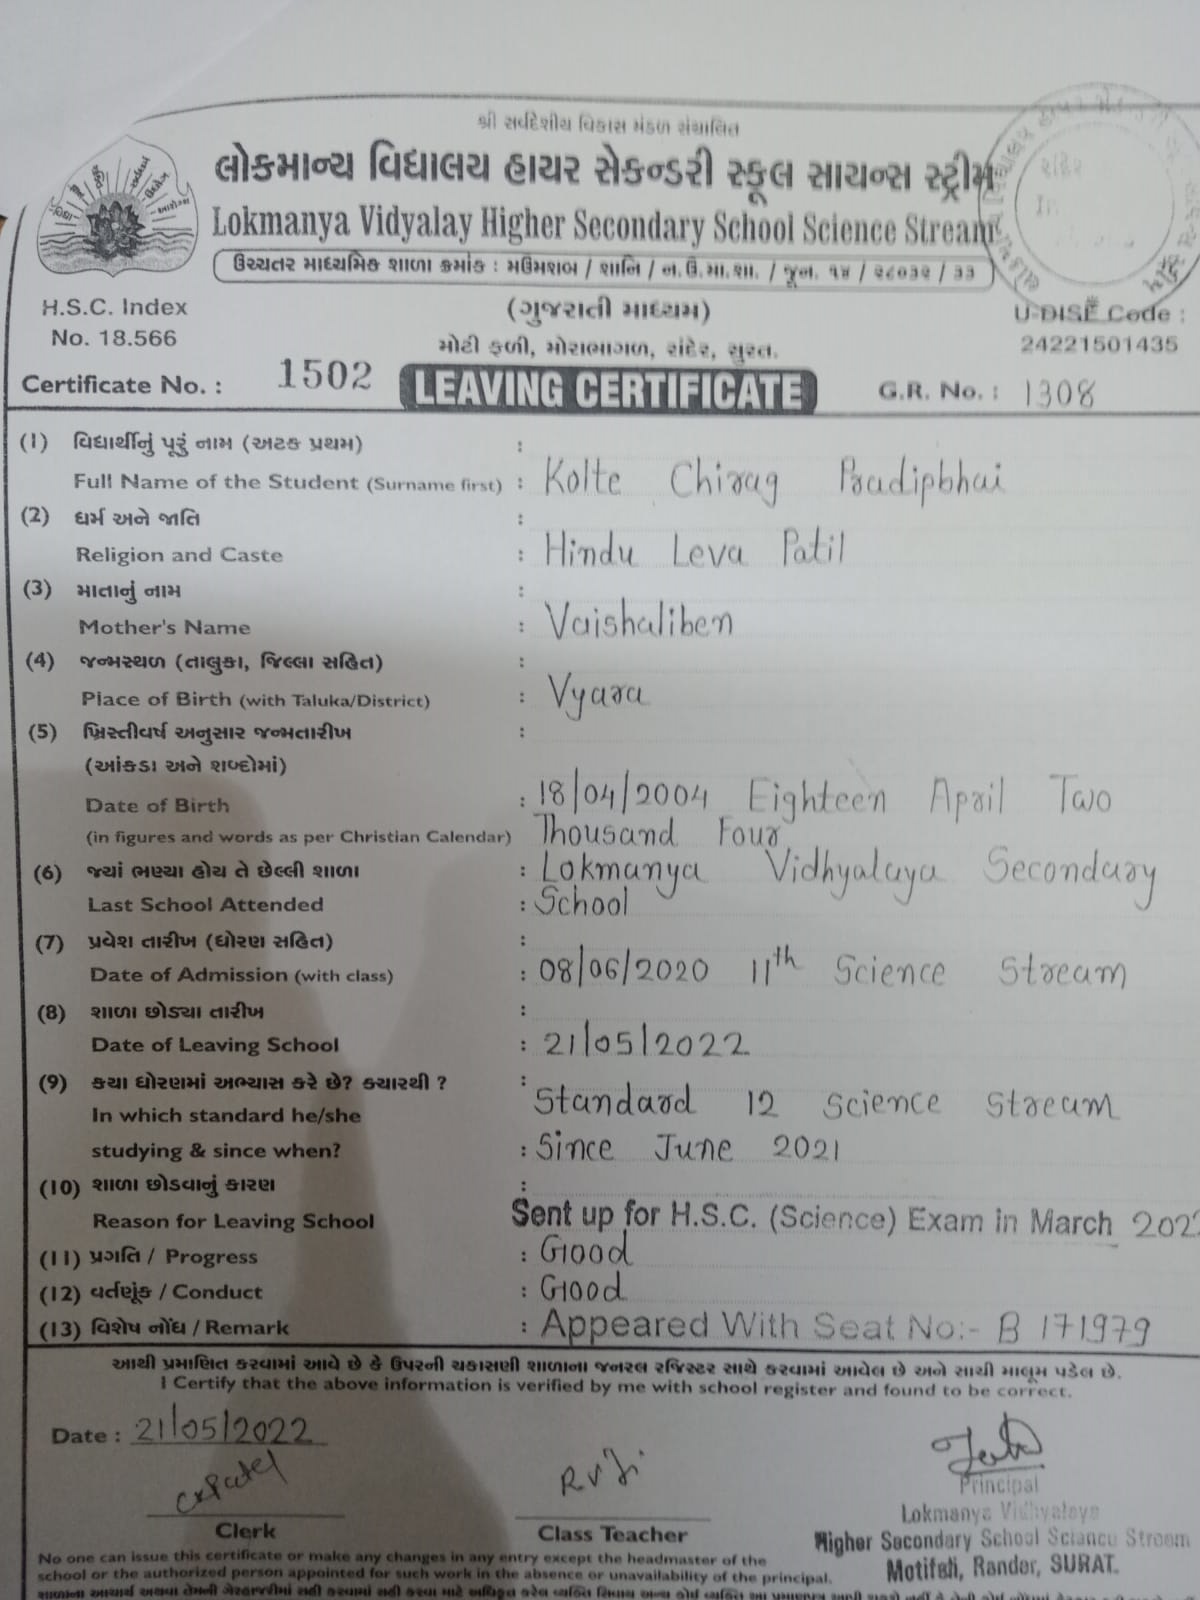 શ્રી સર્વદેશીય વિકાસ મંડળ સંચાલિત
લોકમાન્ય વિદ્યાલય હાયર સેકન્ડરી સ્કૂલ સાયન્સ સ્ટ્રીમ
Lokmanya Vidyalay Higher Secondary School Science Stream
ઉચ્ચતર માધ્યમિક શાળા ક્રમાંક : મઉમશબ / શાનિ / ન.ઉ.મા.શા. / જૂન. ૧૪ / ૨૮૦૩૨ / ૩૩
H.S.C. Index (ગુજરાતી માધ્યમ) U-DISE Code :
No. 18.566 મોટી ફળી, મોરાભાગળ, રાંદેર, સુરત. 24221501435
Certificate No. : 1502 LEAVING CERTIFICATE G.R. No. : 1308
(1) વિદ્યાર્થીનું પૂરું નામ (અટક પ્રથમ) :
Full Name of the Student (Surname first) : Kolte Chirag Pradipbhai
(2) ધર્મ અને જાતિ :
Religion and Caste : Hindu Leva Patil
(3) માતાનું નામ :
Mother's Name : Vaishaliben
(4) જન્મસ્થળ (તાલુકા, જિલ્લા સહિત) :
Place of Birth (with Taluka/District) : Vyara
(5) ખ્રિસ્તીવર્ષ અનુસાર જન્મતારીખ :
(આંકડા અને શબ્દોમાં)
Date of Birth : 18/04/2004 Eighteen April Two
(in figures and words as per Christian Calendar) Thousand Four
(6) જ્યાં ભણ્યા હોય તે છેલ્લી શાળા : Lokmanya Vidhyalaya Secondary
Last School Attended : School
(7) પ્રવેશ તારીખ (ધોરણ સહિત) :
Date of Admission (with class) : 08/06/2020 11th Science Stream
(8) શાળા છોડ્યા તારીખ :
Date of Leaving School : 21/05/2022
(9) કયા ધોરણમાં અભ્યાસ કરે છે? ક્યારથી ? :
In which standard he/she Standard 12 Science Stream
studying & since when? : Since June 2021
(10) શાળા છોડવાનું કારણ :
Reason for Leaving School Sent up for H.S.C. (Science) Exam in March 2022
(11) પ્રગતિ / Progress : Good
(12) વર્તણૂંક / Conduct : Good
(13) વિશેષ નોંધ / Remark : Appeared With Seat No:- B 171979
આથી પ્રમાણિત કરવામાં આવે છે કે ઉપરની ચકાસણી શાળાના જનરલ રજિસ્ટર સાથે કરવામાં આવેલ છે અને સાચી માલૂમ પડેલ છે.
I Certify that the above information is verified by me with school register and found to be correct.
Date : 21/05/2022
Clerk
Class Teacher
Principal
Lokmanya Vidhyalaya
Higher Secondary School Sciancu Streem
Motifali, Rander, SURAT.
No one can issue this certificate or make any changes in any entry except the headmaster of the
school or the authorized person appointed for such work in the absence or unavailability of the principal.